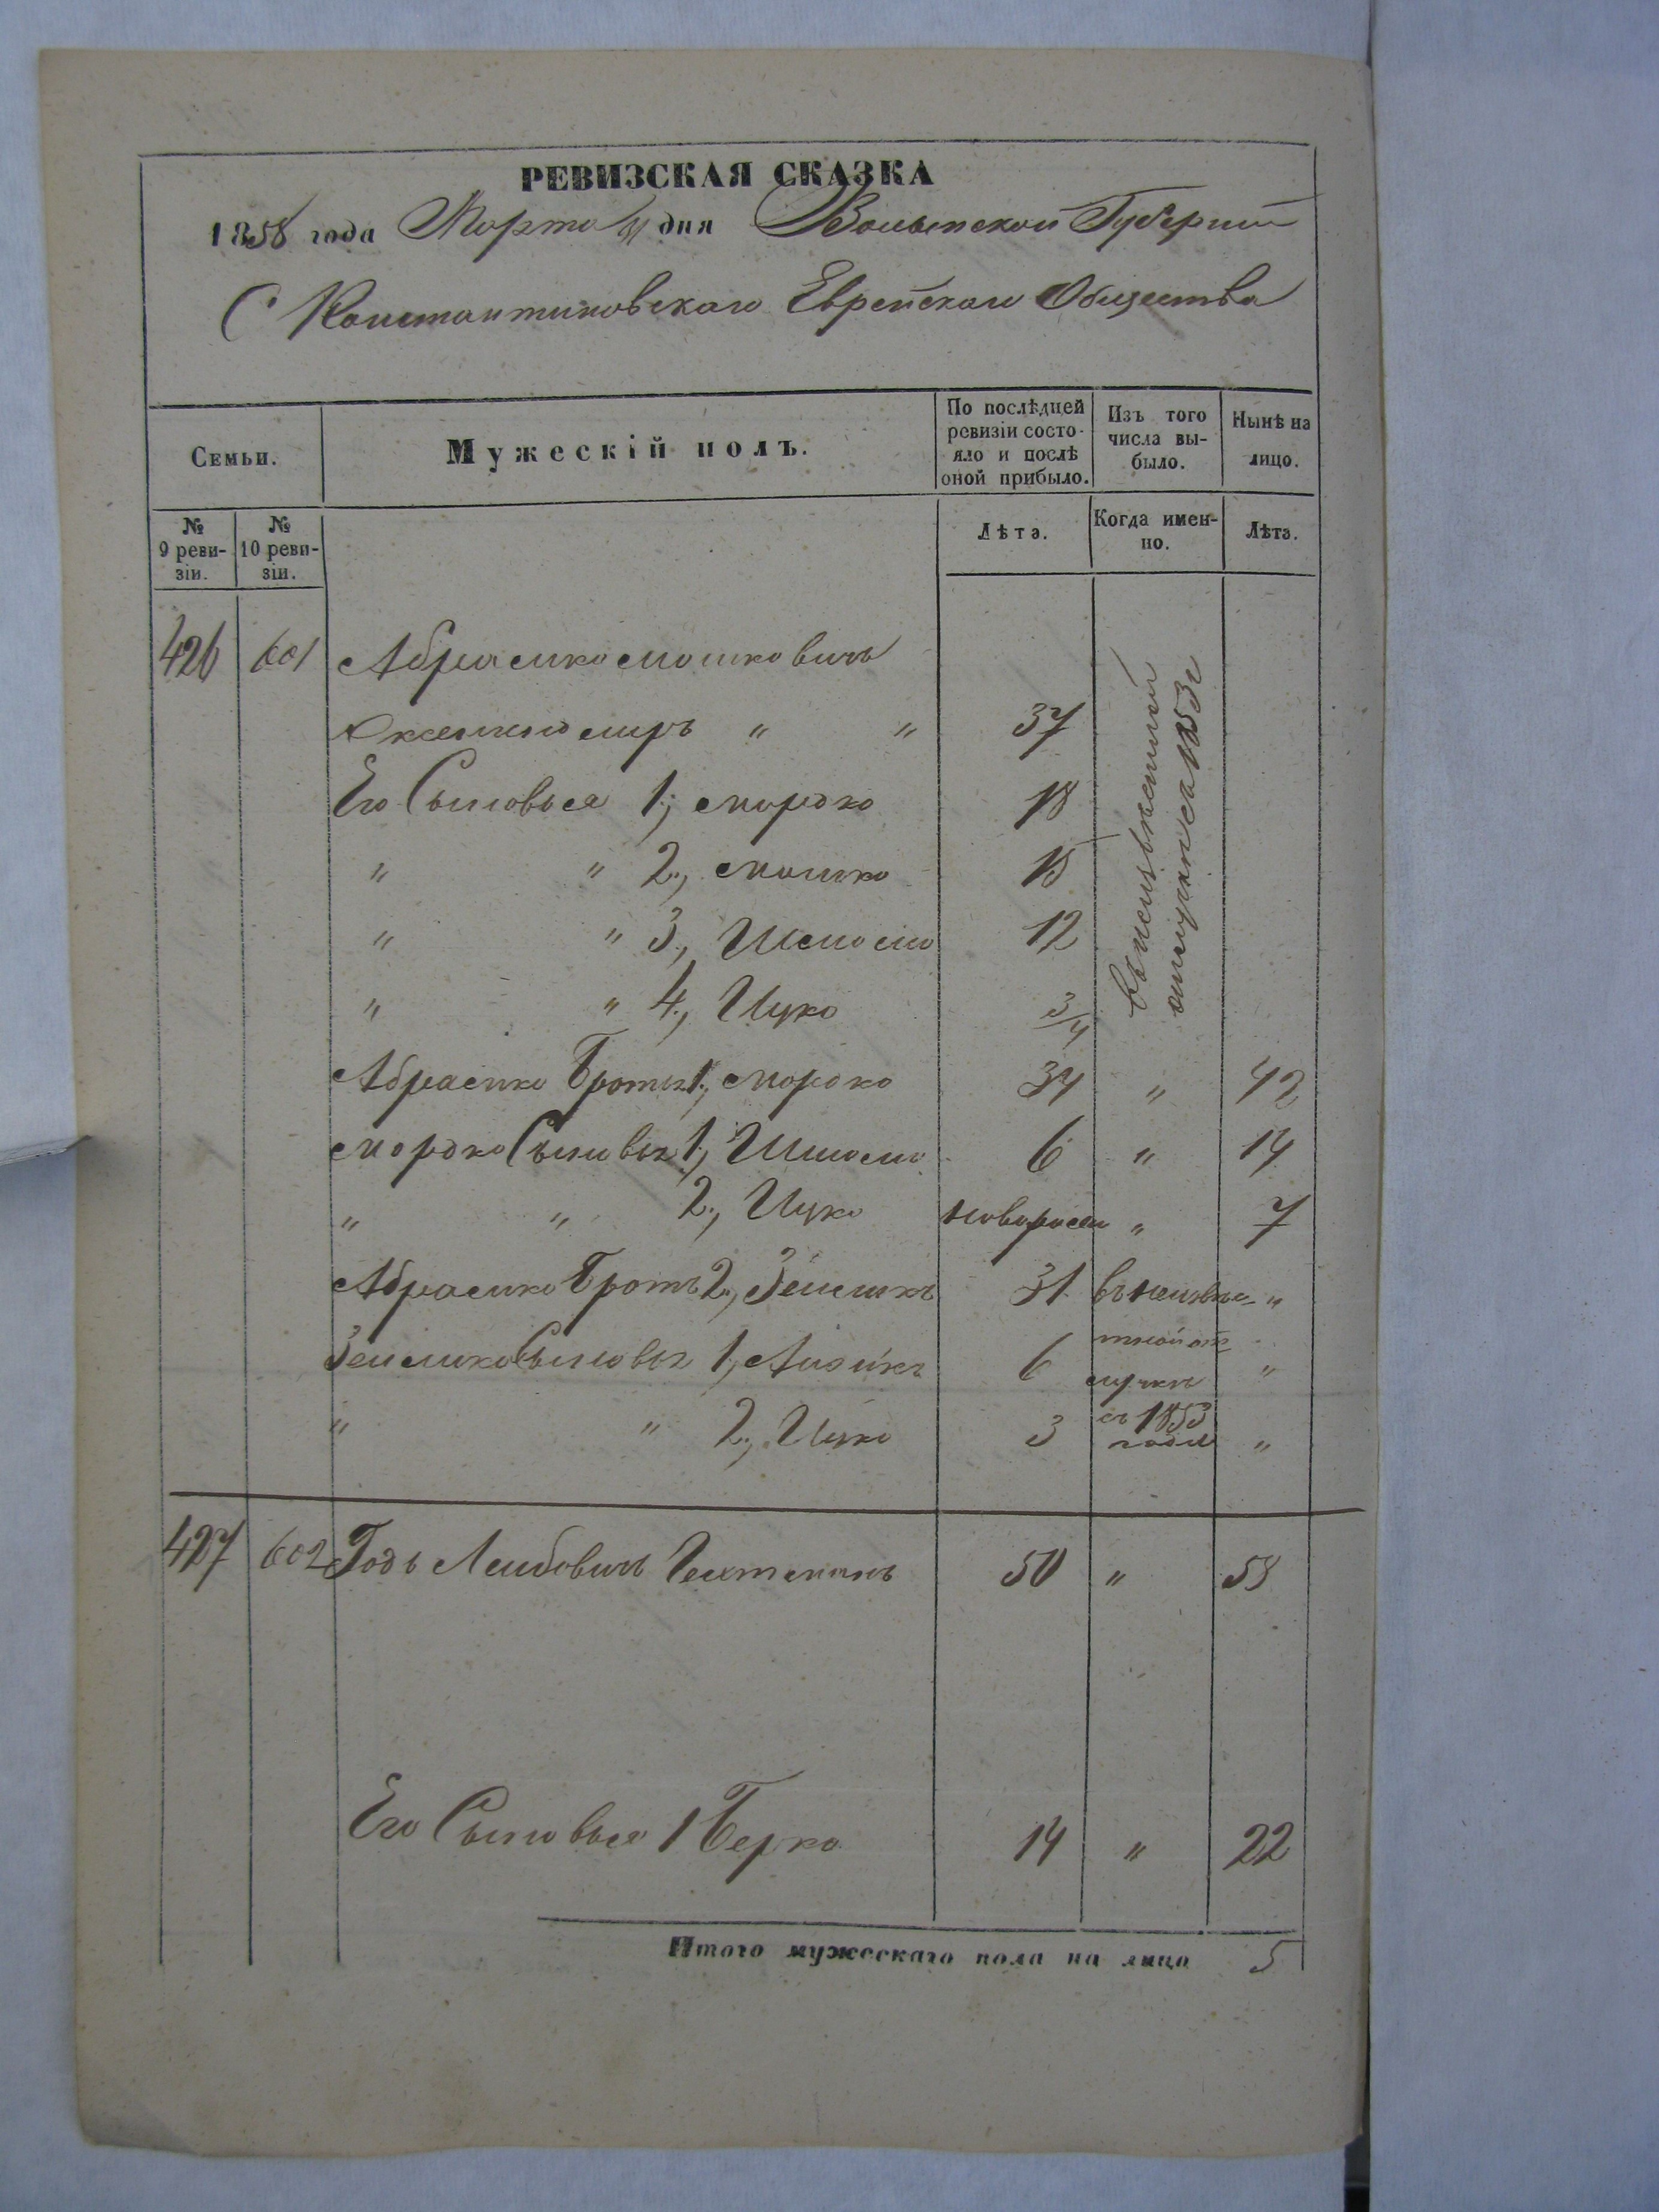 РЕВИЗСКАЯ СКАЗКА
1858 года Марта 31 дня Волынской Губернии
С Константиновскаго Еврейскаго Общества
Семьи.
Мужескій полъ.
По послѣдней ревизіи состояло и послѣ оной прибыло.
Изъ того числа выбыло.
Нынѣ на лицо.
№ 9 ревизіи.
№ 10 ревизіи.
Лѣта.
Когда именно.
Лѣта.
426 601 Абрамко Мошковичъ
" " 37
Его Сыновья 1, Мордко 18
" " 2, Мошко 15
" " 3, Шмоель 12
" " 4, Ицко 3/4
въ неизвѣстной отлучкѣ съ 1853 г
Абрамко Братья 1, Мордко 34 " 42
Мордко Сыновья 1, Шмоель 6 " 14
" " 2, Ицко новорожд " 7
Абрамко Братъ 2, Зельмикъ 31 въ неизвѣс "
Зельмико Сыновья 1, Айзикъ 6 тной отлучкѣ "
" " 2, Ицко 3 съ 1853 года "
427 602 Годъ Лейбовичъ Гехтманъ 50 " 58
Его Сыновья 1 Берко 14 " 22
Итого мужескаго пола на лицо 5